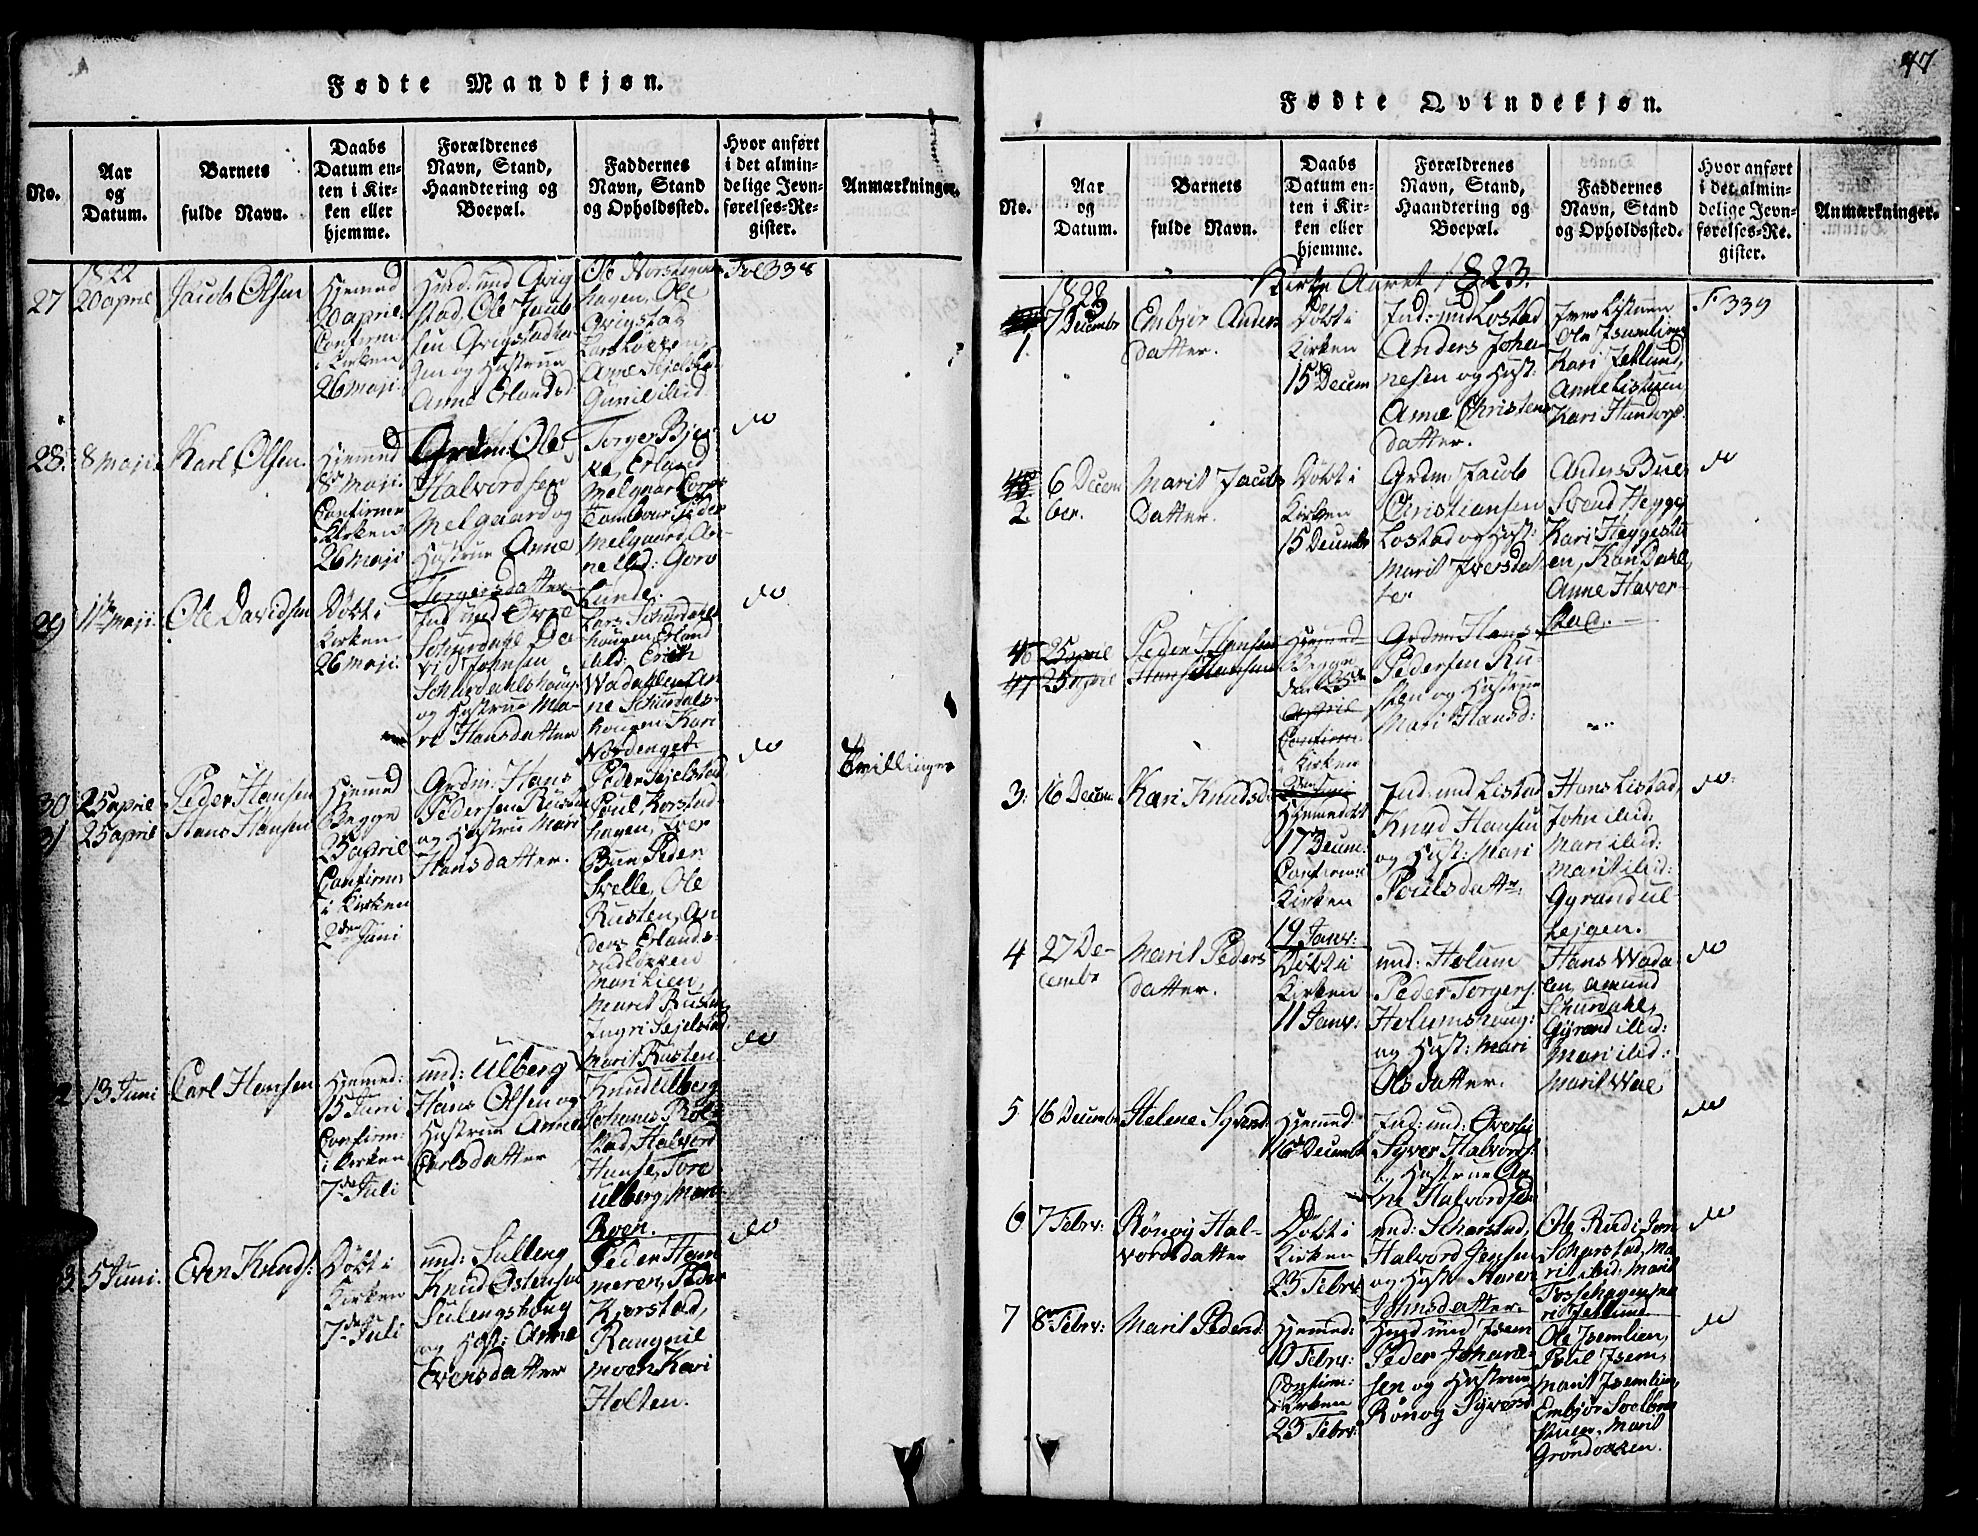 Fødte Mandkjøn.
No.
Aar
og
Datum.
Barnets
fulde Navn.
Daabs
Datum en-
ten i Kir-
ken eller
hjemme.
Forældrenes
Navn, Stand,
Haandtering og
Boepæl.
Faddernes
Navn, Stand
og Opholdssted.
Hvor anført
i det almin-
delige Jevn-
førelses-Re-
gister.
Anmærkninger.
1822
27 20 april
Jacob Olsen
Hjemmed
20 april
Confirm:
i Kirken
26 maji
stad, Ole Jacob
gen og Hustrue
Anne Erlandsd:
hagen, Ole
Qvigstad
Fol 338
28. 8 maji.
Karl Olsen.
Hjemmed
8 maji.
Confirmer
i Kirken
26 maji
Grdm: Ole
Halvordsen
Melgaard og
Hustrue Anne
Torgersdatter
Torger Bjer-
ke, Erland
Melgaard, Corps
Tambour Peder
Melgaard, An-
ne ibd: Goro
Lunde.
do
29 11te maji.
Ole Davidsen
Døbt i
Kirken
26 maji.
vid Johnsen
og Hustrue Ma-
ri Hansdatter
hougen, Erland
ibid: Erich
Wadahlen, An-
ne Schurdals-
hougen, Kari
Nordenget
do
30 25 april
31 25 april
Peder Hansen
Hans Hansen
Hjemmed
Begge
25 april
Confirm:
i Kirken
2den Juni
Grdm: Hans
Pedersen Rusten
og Hustru Mari
Hansdatter.
Peder Sejelstad
Poul Korstad-
hagen, Iver
Bue, Peder
Svelle, Ole
Rusten, An
ders Erlands-
rudløkken
Mari Lien,
Marit Rusten
Ingri Sejelstad
Marit Rusten
do
Tvillinger
2 13 Juni
Carl Hansen
Hjemmed:
15 Juni
Confirm:
i Kirken
7de Juli
und: Ulberg
Hans Olsen og
Hustrue Anne
Carlsdatter
Knud Ulberg
Johannes Røl-
stad, Halvord
Hunse, Tore
Ulberg, Mari
Roen.
do
3. 5 Juni.
Even Knuds:
Døbt i
Kirken
7de Juli
und: Sulleng
Knud Østensen
Sulengshoug
og Hust: Anne
Evensdatter
Peder Ham
meren, Peder
Kjorstad,
Rangnil
Moen Kari
Holten.
do
47
Fødte Qvindekjøn.
No.
Aar
og
Datum.
Barnets
fulde Navn.
Daabs
Datum en-
ten i Kir-
ken eller
hjemme.
Forældrenes
Navn, Stand,
Haandtering og
Boepæl.
Faddernes
Navn, Stand
og Opholdssted.
Hvor anført
i det almin-
delige Jevn-
førelses-Re-
gister.
Anmærkninger.
Kirke Aaret 1823.
1822
1. 7 Decembr
Embjør Anders
datter.
Døbt i
Kirken
15de Decem
Ind: und Lostad
Anders Johan
nesen og Hust:
Anne Christens
datter.
Iver Listuen
Ole Isumlien
Kari Jetlund,
Anne Listuen
Kari Hundorp.
F. 339
2. 6 Decem
ber.
Marit Jacobs
Datter.
Døbt i
Kirken
15 Decembr
Grdm: Jacob
Christiansen
Lostad og Hust:
Marit Iversdat
ter
Anders Bue,
Svend Hegge
Kari Heggesti
en, Kari Dahle,
Anne Haver-
stad.
do
46 25 april
47 25 april
Peder Hansen
Hans Hansen
Hjemmed
Begge
den 25de
April
Confirm:
i Kirken
Grdm: Hans
Pedersen Ru-
sten og Hustrue
Mari Hansd:
3. 16 Decem
Kari Knudsd:
Hjemmedøbt
17de Decem:
Confirmer
Kirken
19 Janv:
Ind: und Listad
Knud Hansen
og Hust: Mari
Poulsdattr:
Hans Listad,
John ibid:
Mari ibid:
Marit ibid:
Gyrand Ul
lejgen.
do
4 27 De-
cembr
Marit Peders
datter.
Døbt i
Kirken
11 Janv:
und: Holum
Peder Torgers:
Holumshoug:
og Hust: Mari
Olsdatter.
Hans Wada
len, Amund
Schurdahl,
Gyrand ibid:
Mari ibid:
Marit Wol
do
5 16 Decembr
Helene Syversd:
Hjemmed:
16de Decembr
Ind: und: Øverby
Syver Halvords:
og Hustrue An
ne Halvordsd:
do
6 7 Febr:
Rønog Hal-
vordsdatter
Døbt i
Kirken
23 Febr:
und: Scharstad,
Halvord Jensen
og Hust: Karen
Johnsdatter.
Ole Rud, Jon
Scharstad, Ma
rit ibid: Marit
Fossehagen, Ma
ri Jetlund
do
7 8 Febr:
Marit Pedersd:
Hjemmed:
10 Febr:
Confirm:
i Kirken
23 Febr:
Husd und Isem
Peder Johane-
sen og Hustrue
Rønog Syversd
Ole Isemlien,
Poul Isem,
Marit Isemlien,
Embjør Soelbræ
stuen, Marit
Grøndokken.
do